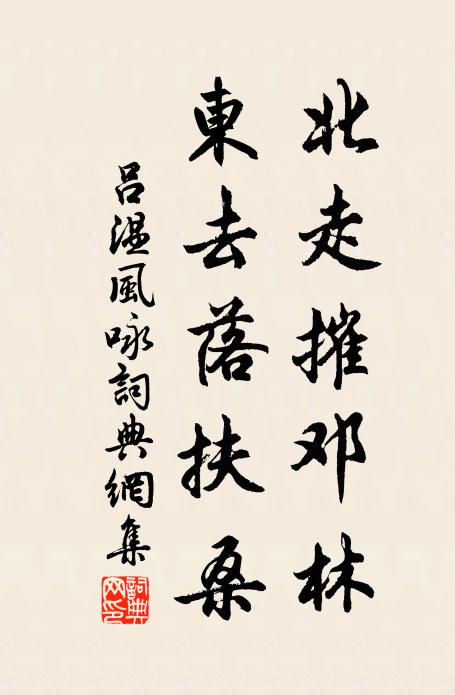 北走摧邓林
東去落扶桑
吕温風咏詞典網集
詞典网印